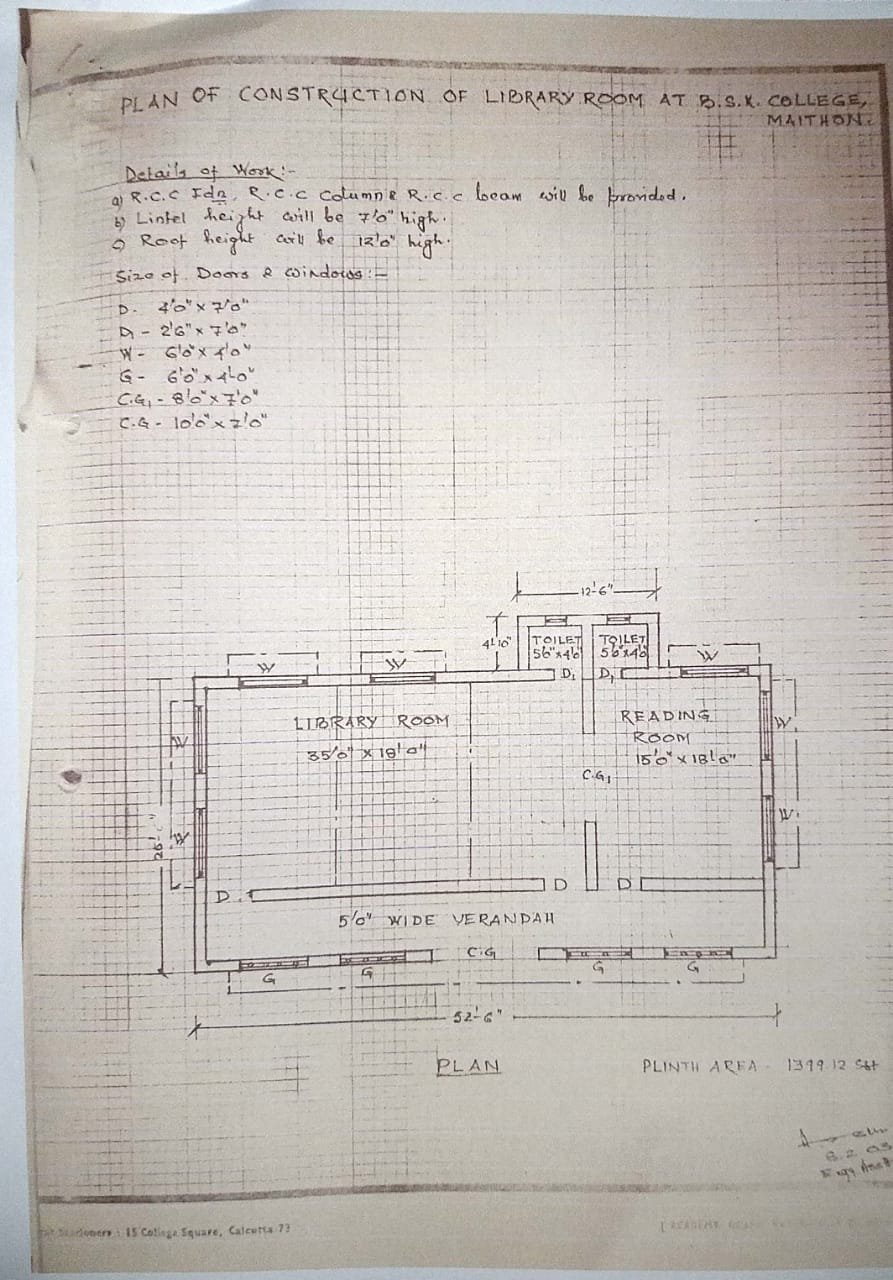 PLAN OF CONSTRUCTION OF LIBRARY ROOM AT B.S.K. COLLEGE,
MAITHON.
Details of Work:-
a) R.C.C Fdn, R.C.C Column & R.C.C beam will be provided.
b) Lintel height will be 7'0" high.
c) Roof height will be 12'0" high.
Size of Doors & Windows:-
D. 4'0" x 7'0"
D1 - 2'6" x 7'0"
W - 6'0" x 4'0"
G - 6'0" x 4'-0"
C.G1 - 8'0" x 7'0"
C.G - 10'0" x 7'0"
12'-6"
4'-10"
TOILET
5'6"x4'6"
TOILET
5'6"x4'6"
W
W
W
D1
D1
LIBRARY ROOM
35'0" x 18'0"
READING
ROOM
15'0" x 18'0"
W
W
C.G1
W
W
26'-
D
D
D
5'0" WIDE VERANDAH
C.G
G
G
G
G
52'-6"
PLAN
PLINTH AREA - 1399.12 Sft
Stationers : 15 College Square, Calcutta 73